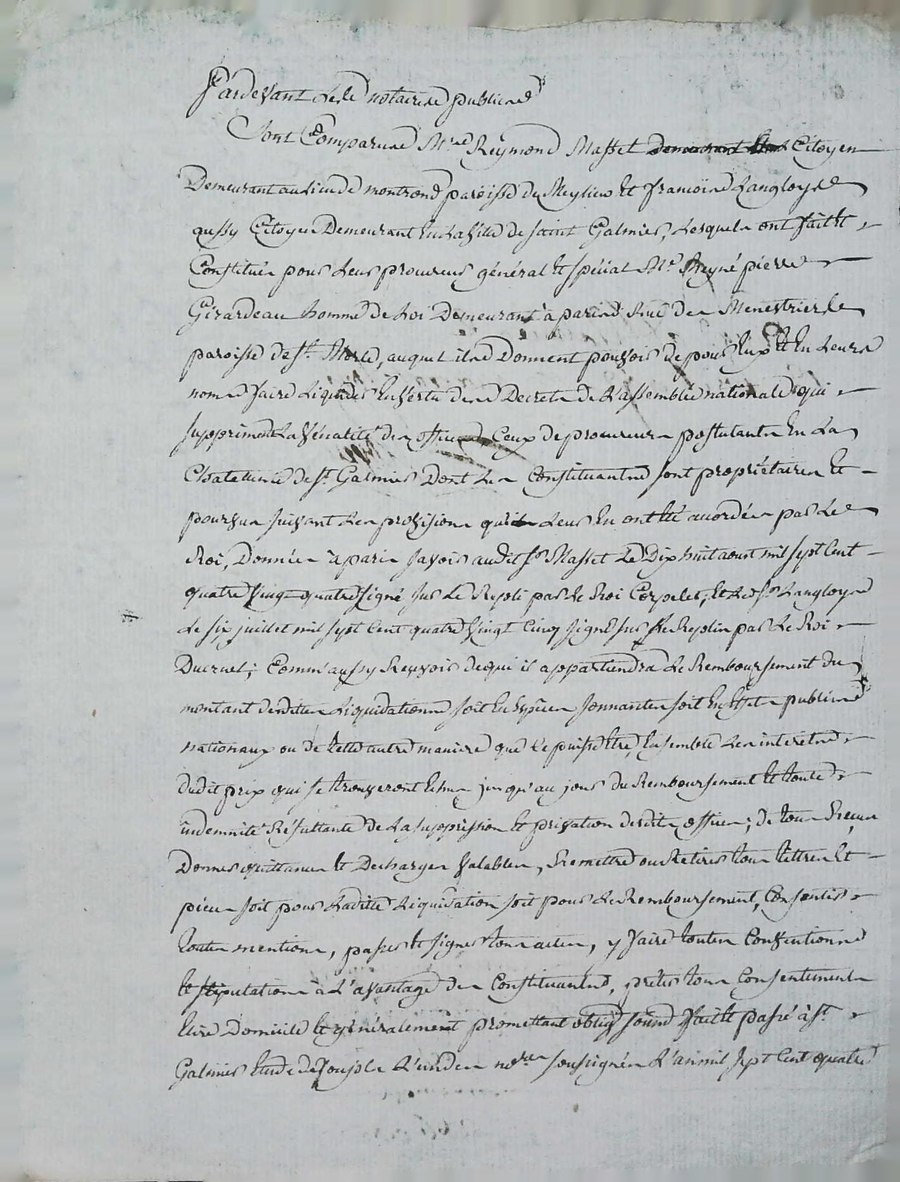 Pardevant les notaires publics
Sont Comparus Mres Reymond Masset Citoyen
Demeurant au lieu de montrond paroisse de Meylieu et francois Langloys
aussy Citoyen Demeurant En la ville de saint Galmier, Lesquels ont fait et
Constitué pour Leur procureur général et spécial Me pierre
Girardeau homme de Loi Demeurant à paris Rue des Menestriers
paroisse de St. auquel ils Donnent pouvoir de pour Eux et En Leurs
noms faire Liquider En vertu des Decrets de L'assemblée nationale qui
suppriment La Vénalité des offices Ceux de procureurs postulants En La
Chatelenie de St. Galmier Dont Les Constituants sont propriétaires et
pourvus suivant Les provisions qui Leur En ont été accordées par Le
Roi, Données à paris savoir audit Sr Masset Le Dix huit aoust mil sept Cent
quatre Vingt quatre signé sur Le Reply par Le Roi et Le Sr. Langloys
Le six juillet mil sept Cent quatre Vingt Cinq signé sur Le Reply par Le Roi
Ducruet; Comm'aussy Recevoir de qui il appartiendra Le Remboursement du
montant desdites Liquidations soit En Espèces sonnantes soit En Effets publics
nationaux ou de telle autre manière que Ce puisse être, Ensemble Les interets
dudit prix qui se trouveront Echus jusqu'au jour du Remboursement Et toute
indemnité Résultante de La suppression et privation desdits offices; de tous Reçus
Donner quittances et Decharges Valables, Remettre ou Retirer tous tittres Et
pièces soit pour Ladite Liquidation soit pour Le Remboursement, Consentir
toutes mentions, passer et signer tous actes, y faire toutes Conventions
et stipulations à L'avantage des Constituants, prêter tous Consentements
Elire Domicile et généralement promettant oblig fait et passé à St.
Galmier Etude de L'un des nores soussignés L'an mil sept Cent quatre